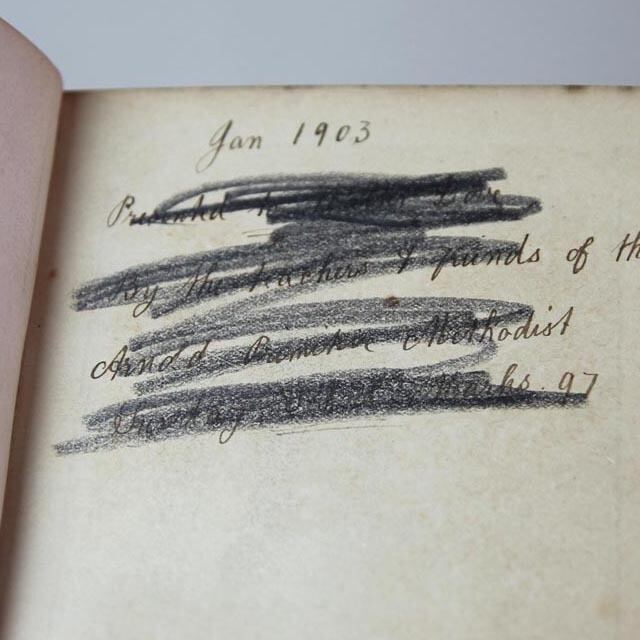 Jan 1903
Presented to
By the teachers & friends of th
Arnold Primitive Methodist
Sunday School Marks. 97